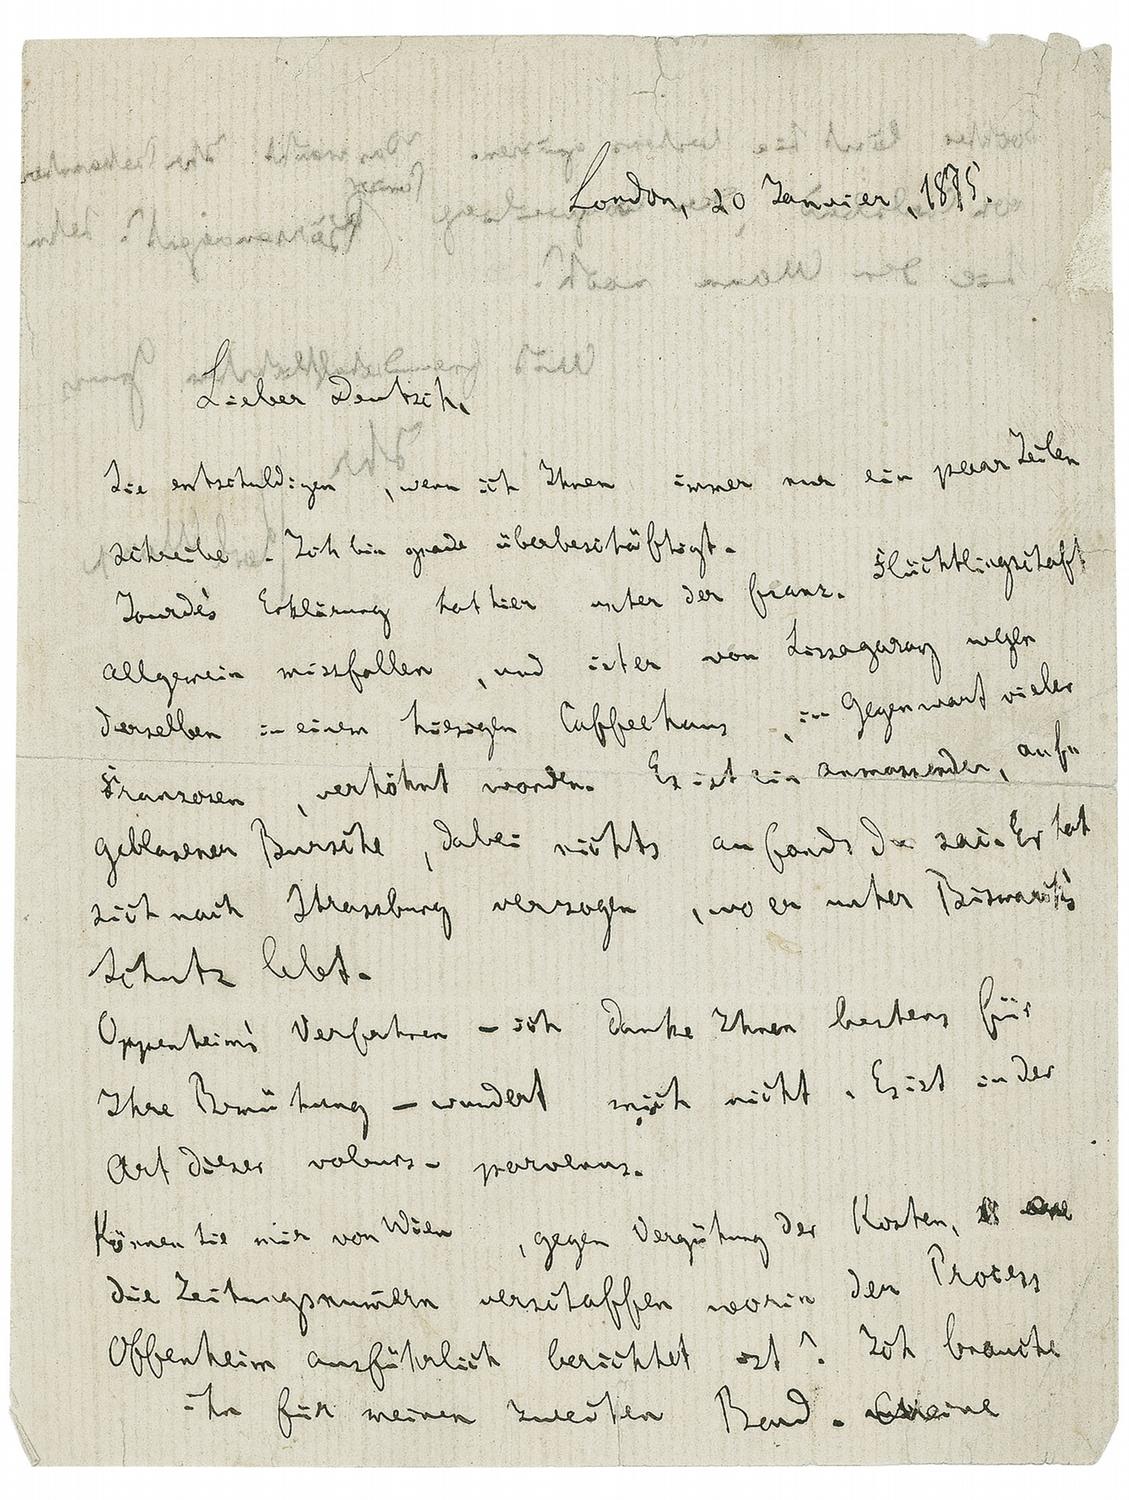 London, 20 Januier, 1875.
Lieber Deutsch,
Sie entschuldigen, wenn ich Ihnen immer nur ein paar Zeilen
schreibe. Ich bin grade überbeschäftigt.
Jourde's Erklärung hat hier unter der franz. Flüchtlingschaft
allgemein missfallen, und ist er von Lissagaray wegen
derselben in einem hiesigen Caffeehaus, in Gegenwart vieler
Franzosen, verhöhnt worden. Es ist ein anmassender, aufu
geblasener Bursche, dabei nichts au fonds du sac. Er hat
sich nach Strassburg verzogen, wo er unter Bismarck's
Schutz lebt.
Oppenheim's Verfahren – ich danke Ihnen bestens für
Ihre Bemühung – wundert mich nicht. Es ist in der
Art dieser voleurs-parvenus.
Können Sie mir von Wien, gegen Vergütung der Kosten,
die Zeitungsnumern verschaffen worin der Process
Offenheim ausführlich berichtet ist? Ich brauche
ihn für meinen zweiten Band. Meine